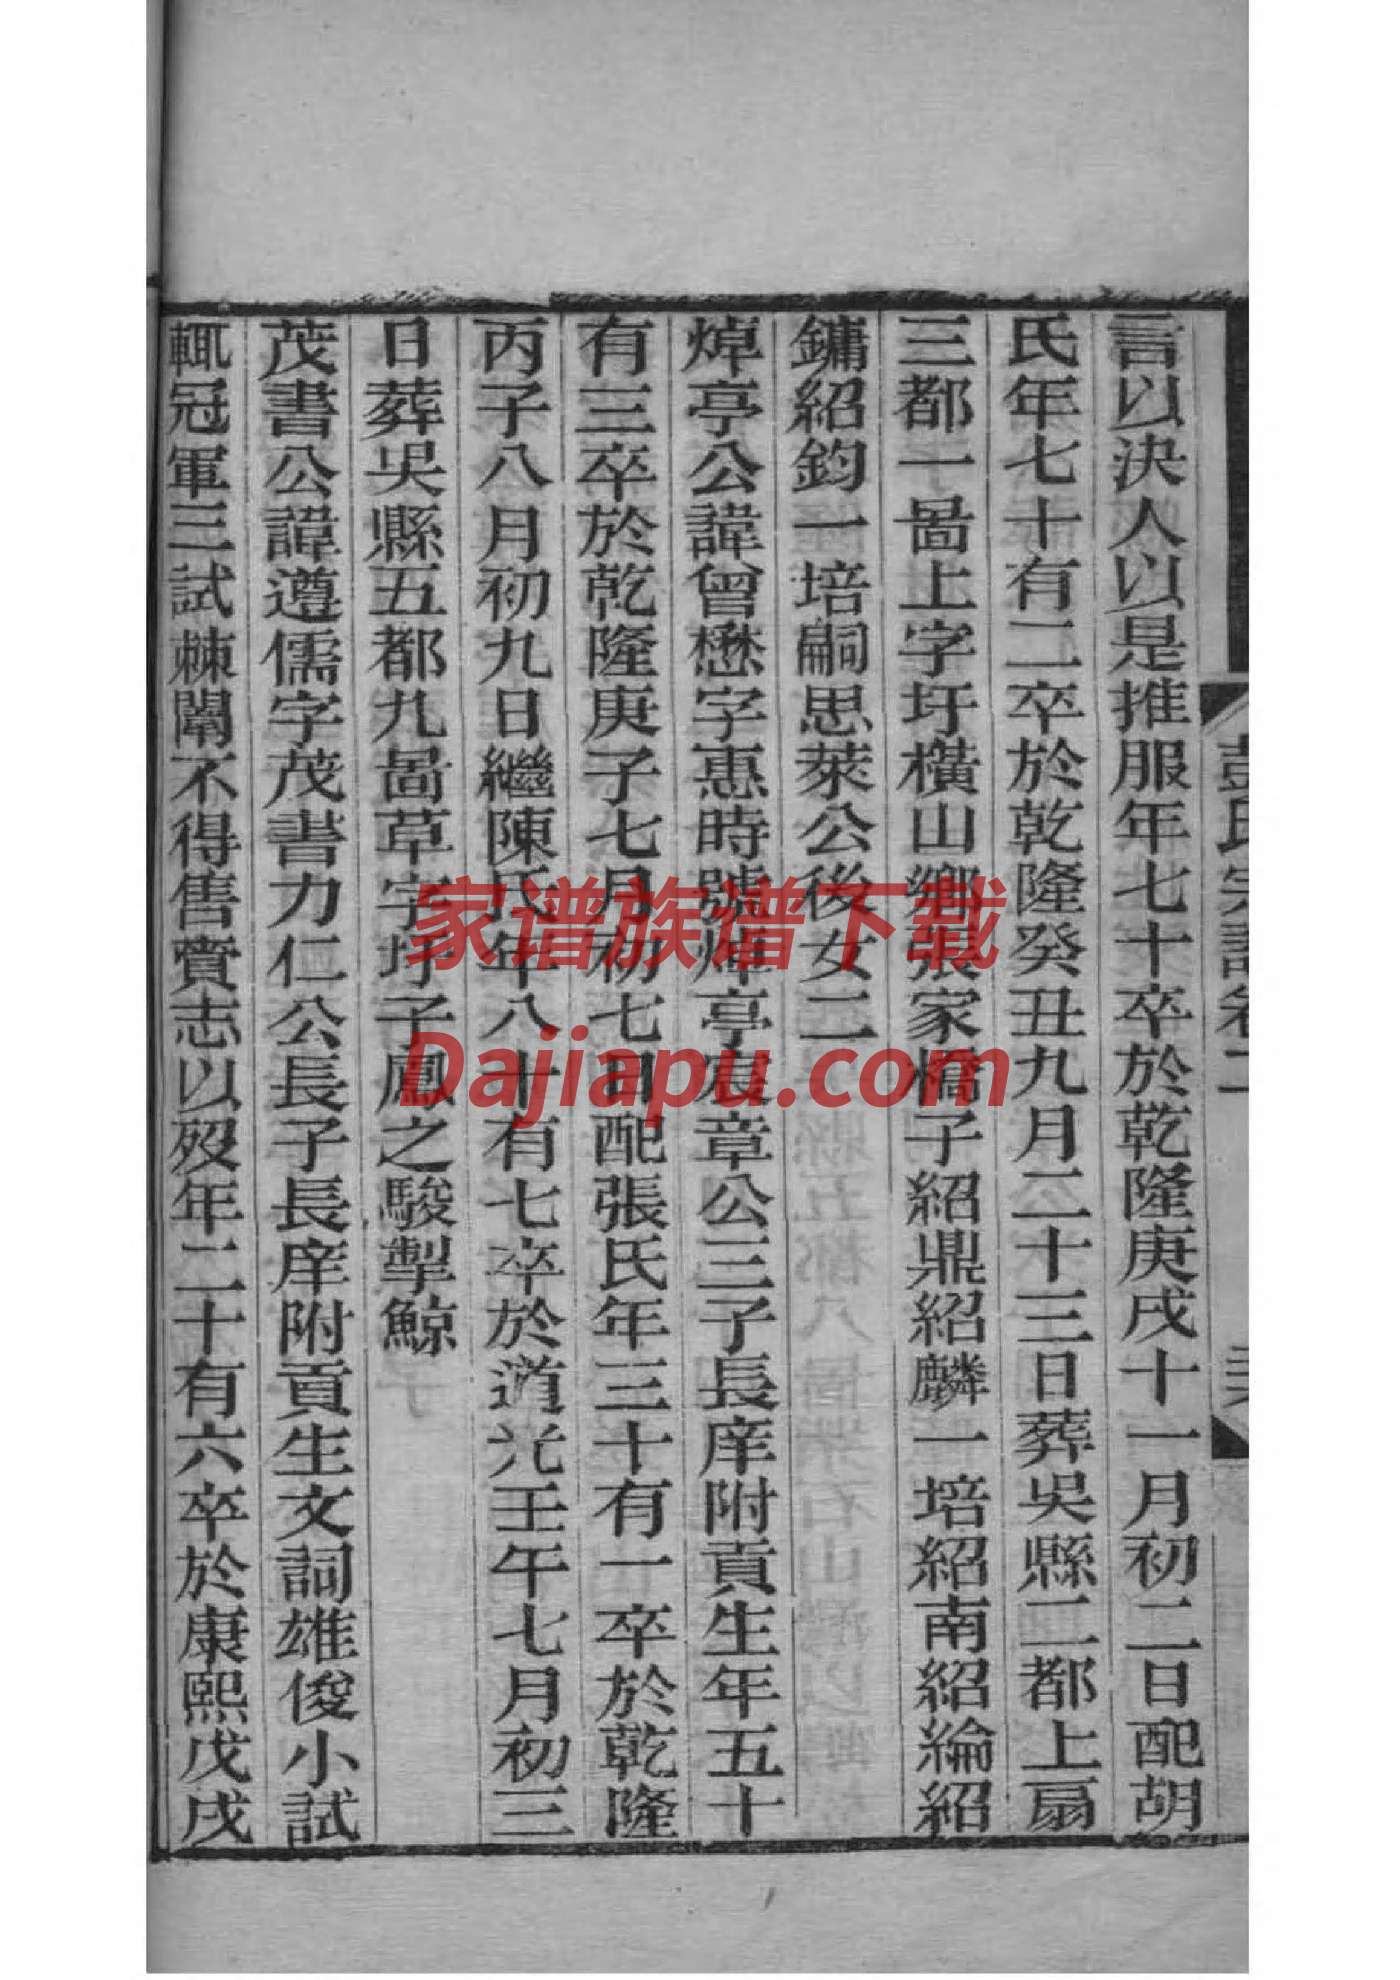 言以決人以是推服年七十卒於乾隆庚戌十一月初二日配胡
氏年七十有二卒於乾隆癸丑九月二十三日葬吳縣二都上扇
三都一啚上字圩橫山鄉張家橋子紹鼎紹麟一培紹南紹綸紹
鏞紹鈞一培嗣思萊公後女二
焯亭公諱曾懋字惠時號焯亭扆章公三子長庠附貢生年五十
有三卒於乾隆庚子七月初七日配張氏年三十有一卒於乾隆
丙子八月初九日繼陳氏年八十有七卒於道光壬午七月初三
日葬吳縣五都九啚草字圩子鳳之駿掣鯨
茂書公諱遵儒字茂書力仁公長子長庠附貢生文詞雄俊小試
輒冠軍三試棘闈不得售賫志以歿年二十有六卒於康熙戊戌
彭氏宗譜卷二
家谱族谱下载
Dajiapu.com